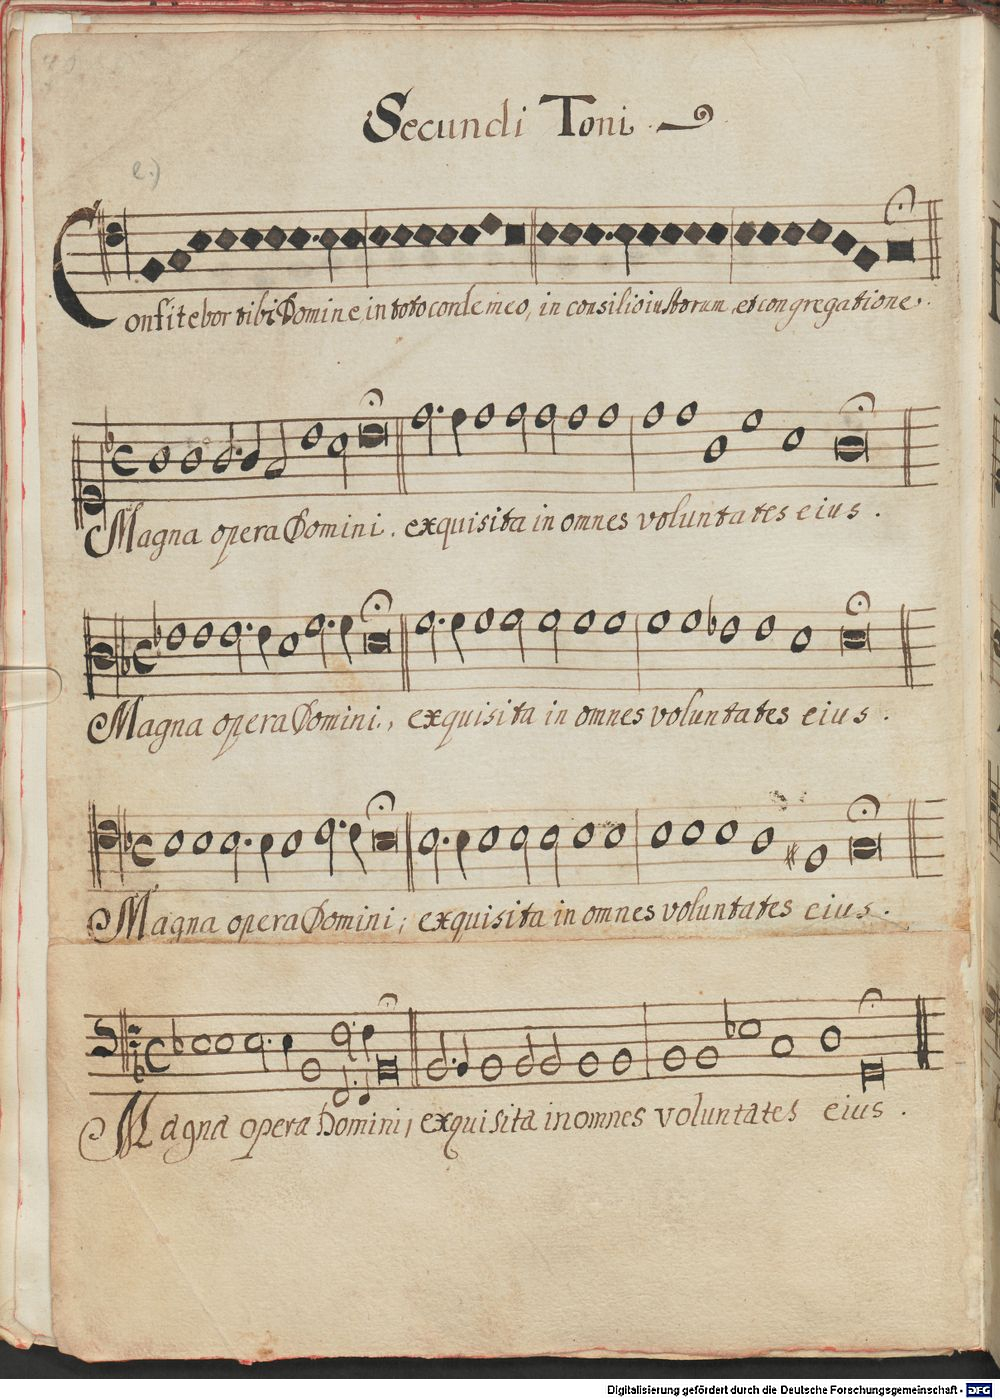 Secundi Toni
e.)
Confitebor tibi Domine, in toto corde meo, in consilio iustorum et congregatione.
Magna opera Domini. exquisita in omnes voluntates eius.
Magna opera Domini, exquisita in omnes voluntates eius.
Magna opera Domini, exquisita in omnes voluntates eius.
Magna opera Domini, exquisita in omnes voluntates eius.
Digitalisierung gefördert durch die Deutsche Forschungsgemeinschaft - DFG